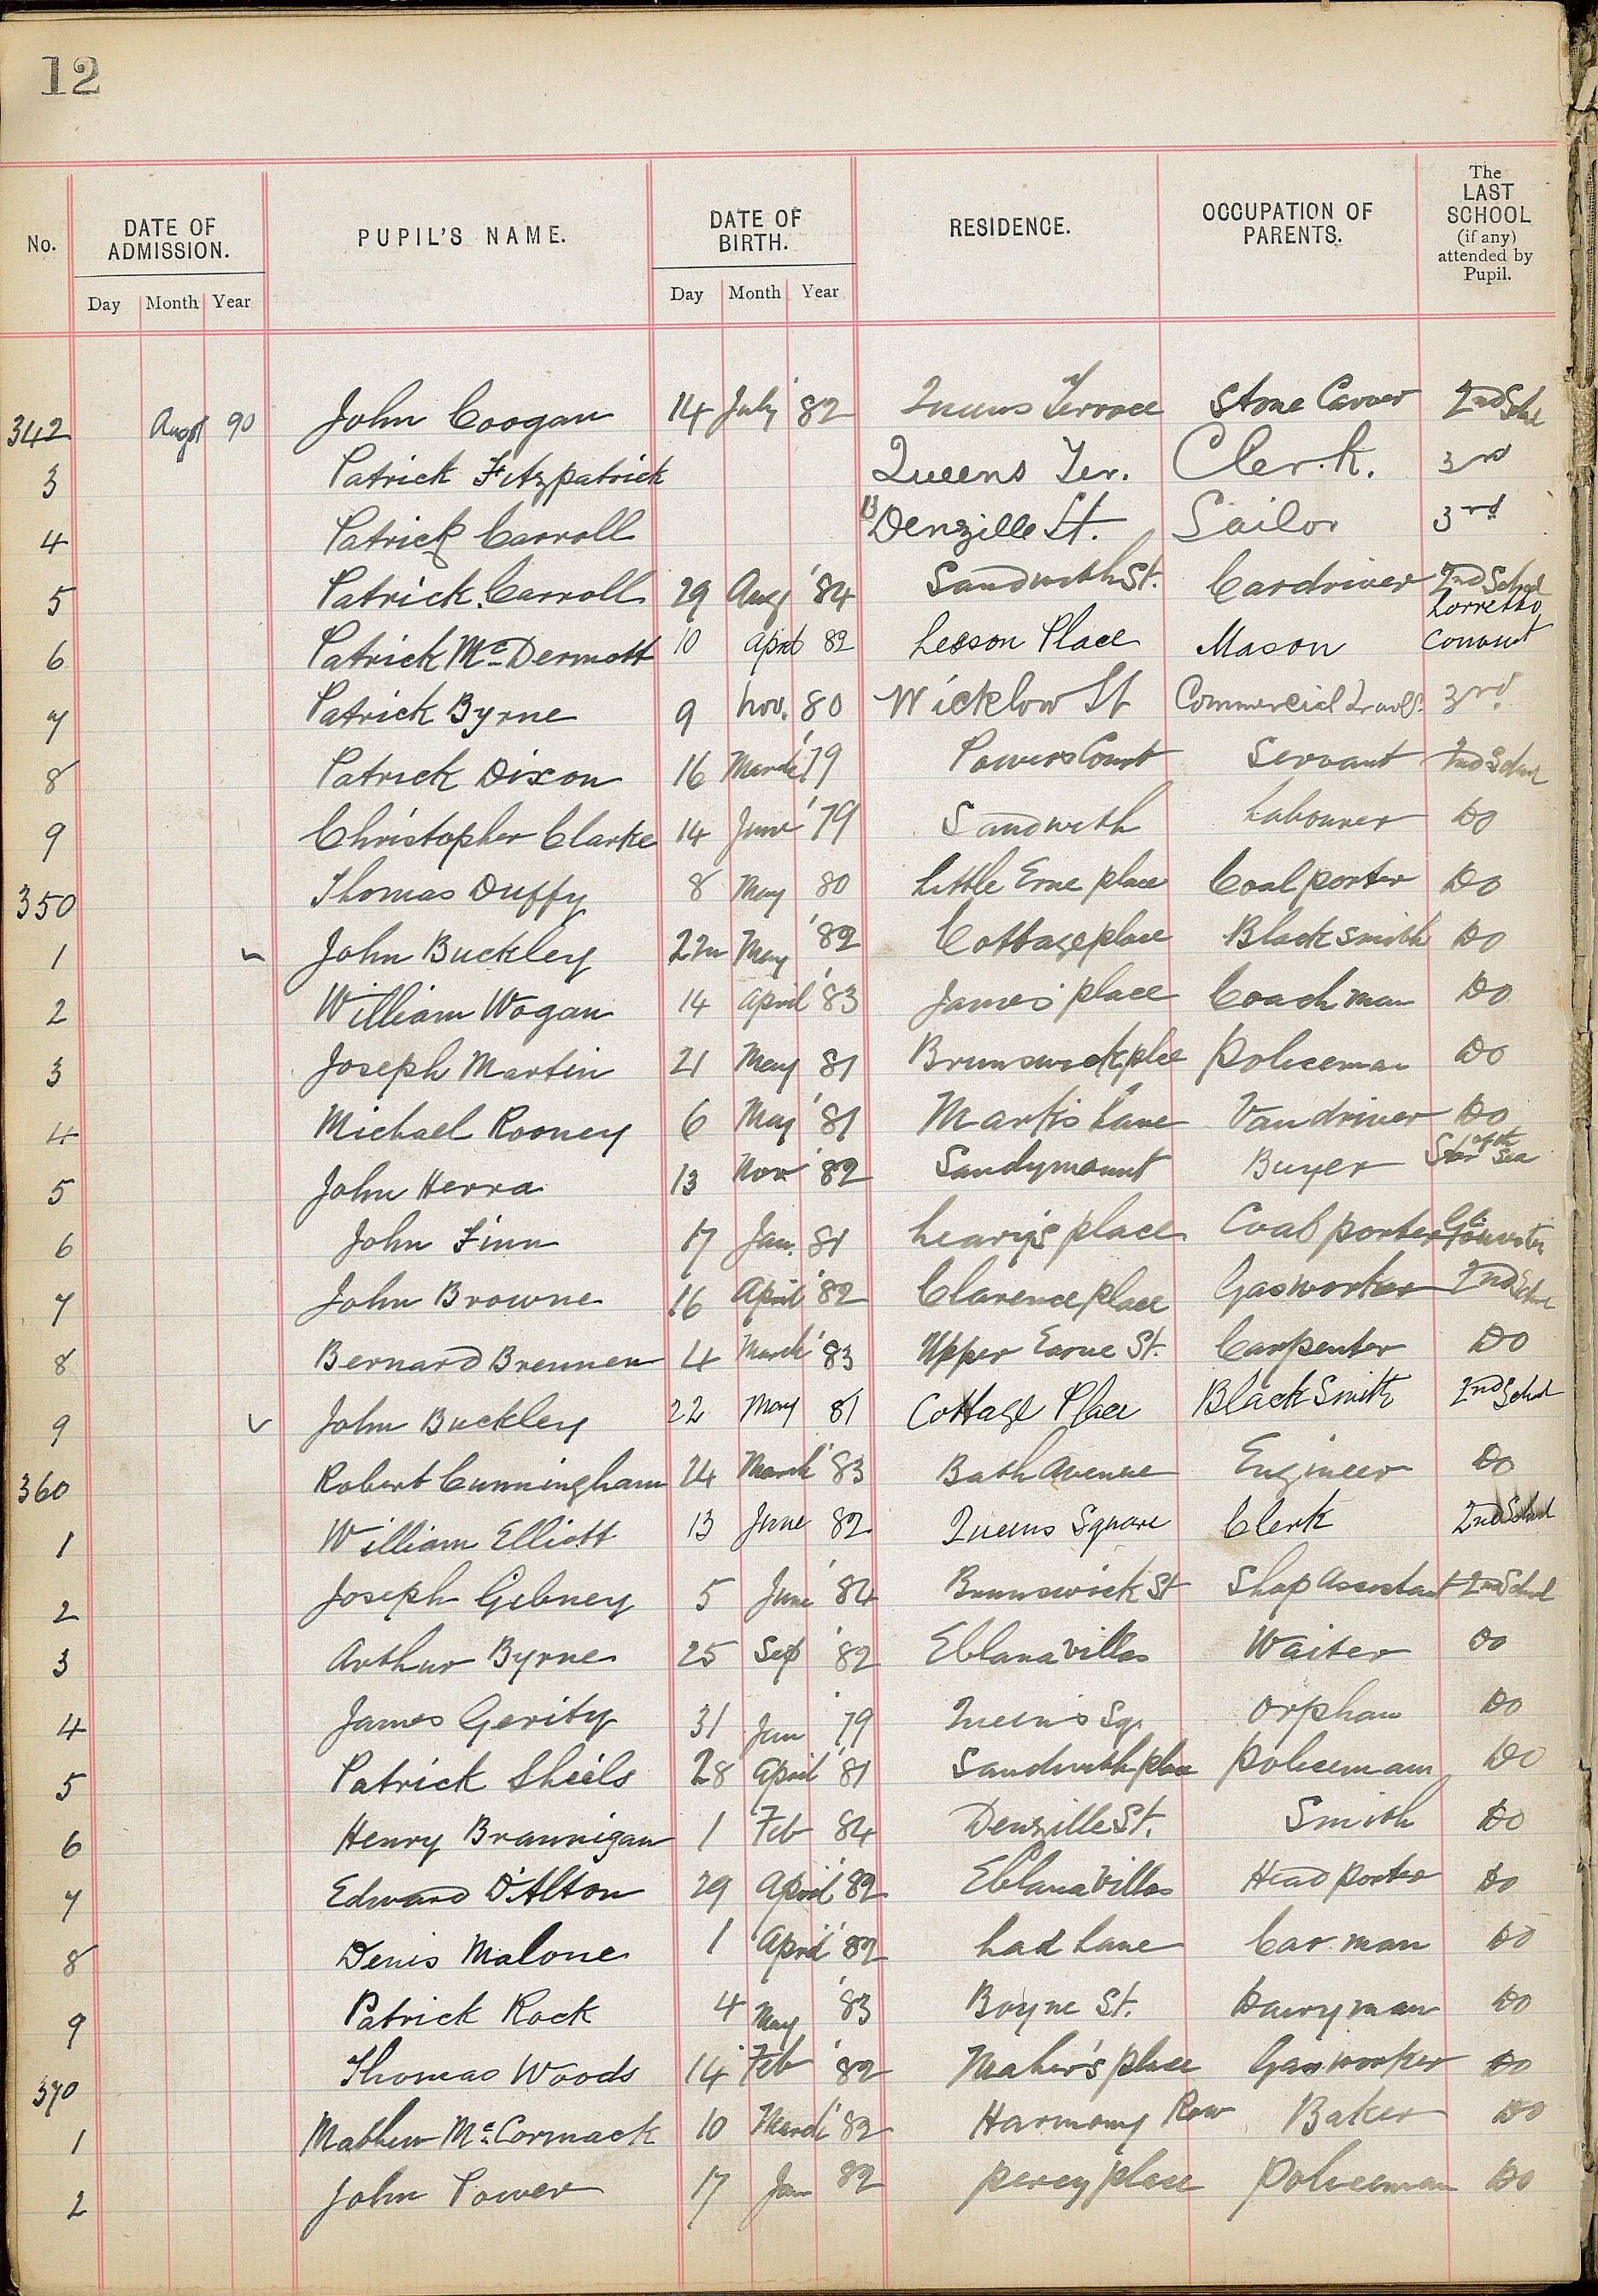 12
No. DATE OF ADMISSION. PUPIL'S NAME. DATE OF BIRTH. RESIDENCE. OCCUPATION OF PARENTS. The LAST SCHOOL (if any) attended by Pupil.
Day Month Year Day Month Year
342 Augst 90 John Coogan 14 July '82 Queens Terrace Stone Carver 2nd Schl
3 Patrick Fitzpatrick Queens Ter. Clerk. 3rd
4 Patrick Carroll 13 Denzille St. Sailor 3rd
5 Patrick Carroll 29 Aug '84 Sandwith St. Cardriver 2nd School
6 Patrick Mc Dermott 10 April 82 Leeson Place Mason Lorretto Convent
7 Patrick Byrne 9 Nov. 80 Wicklow St Commercial Travlr. 3rd
8 Patrick Dixon 16 March '79 Powers Court Servant 2nd School
9 Christopher Clarke 14 June '79 Sandwith Labourer Do
350 Thomas Duffy 8 May 80 Little Erne place Coal porter Do
1 John Buckley 22n May '82 Cottage place Blacksmith Do
2 William Wogan 14 April '83 James' place Coachman Do
3 Joseph Martin 21 May 81 Brunswick plce Policeman Do
4 Michael Rooney 6 May '81 Mark's Lane Vandriver Do
5 John Herra 13 Nov '82 Sandymount Buyer Star of the Sea
6 John Finn 17 Jan. 81 Leary's place Coal porter
7 John Browne 16 April '82 Clarence place Gasworker 2nd Schl
8 Bernard Brennen 4 March '83 Upper Earne St. Carpenter Do
9 John Buckley 22 May 81 Cottage Place Black Smith 2nd Schol
360 Robert Cunningham 24 March '83 Bath Avenue Engineer Do
1 William Elliott 13 June 82 Queens Square Clerk 2nd School
2 Joseph Gebney 5 June '84 Brunswick St Shop Assistant 2nd School
3 Arthur Byrne 25 Sep '82 Eblana Villas Waiter Do
4 James Gerity 31 Jan '79 Queen's Sqr. Orphan Do
5 Patrick Sheils 28 April '81 Sandwith place Policeman Do
6 Henry Brannigan 1 Feb '84 Denzille St. Smith Do
7 Edward D'Alton 29 April '82 Eblana Villas Head Porter Do
8 Denis Malone 1 April '82 Lad Lane Car man Do
9 Patrick Rock 4 May '83 Boyne St. Dairyman Do
370 Thomas Woods 14 Feb '82 Maher's place Gasworker Do
1 Mathew Mc Cormack 10 March '82 Harmony Row Baker Do
2 John Power 17 Jan 82 Percy place Policeman Do